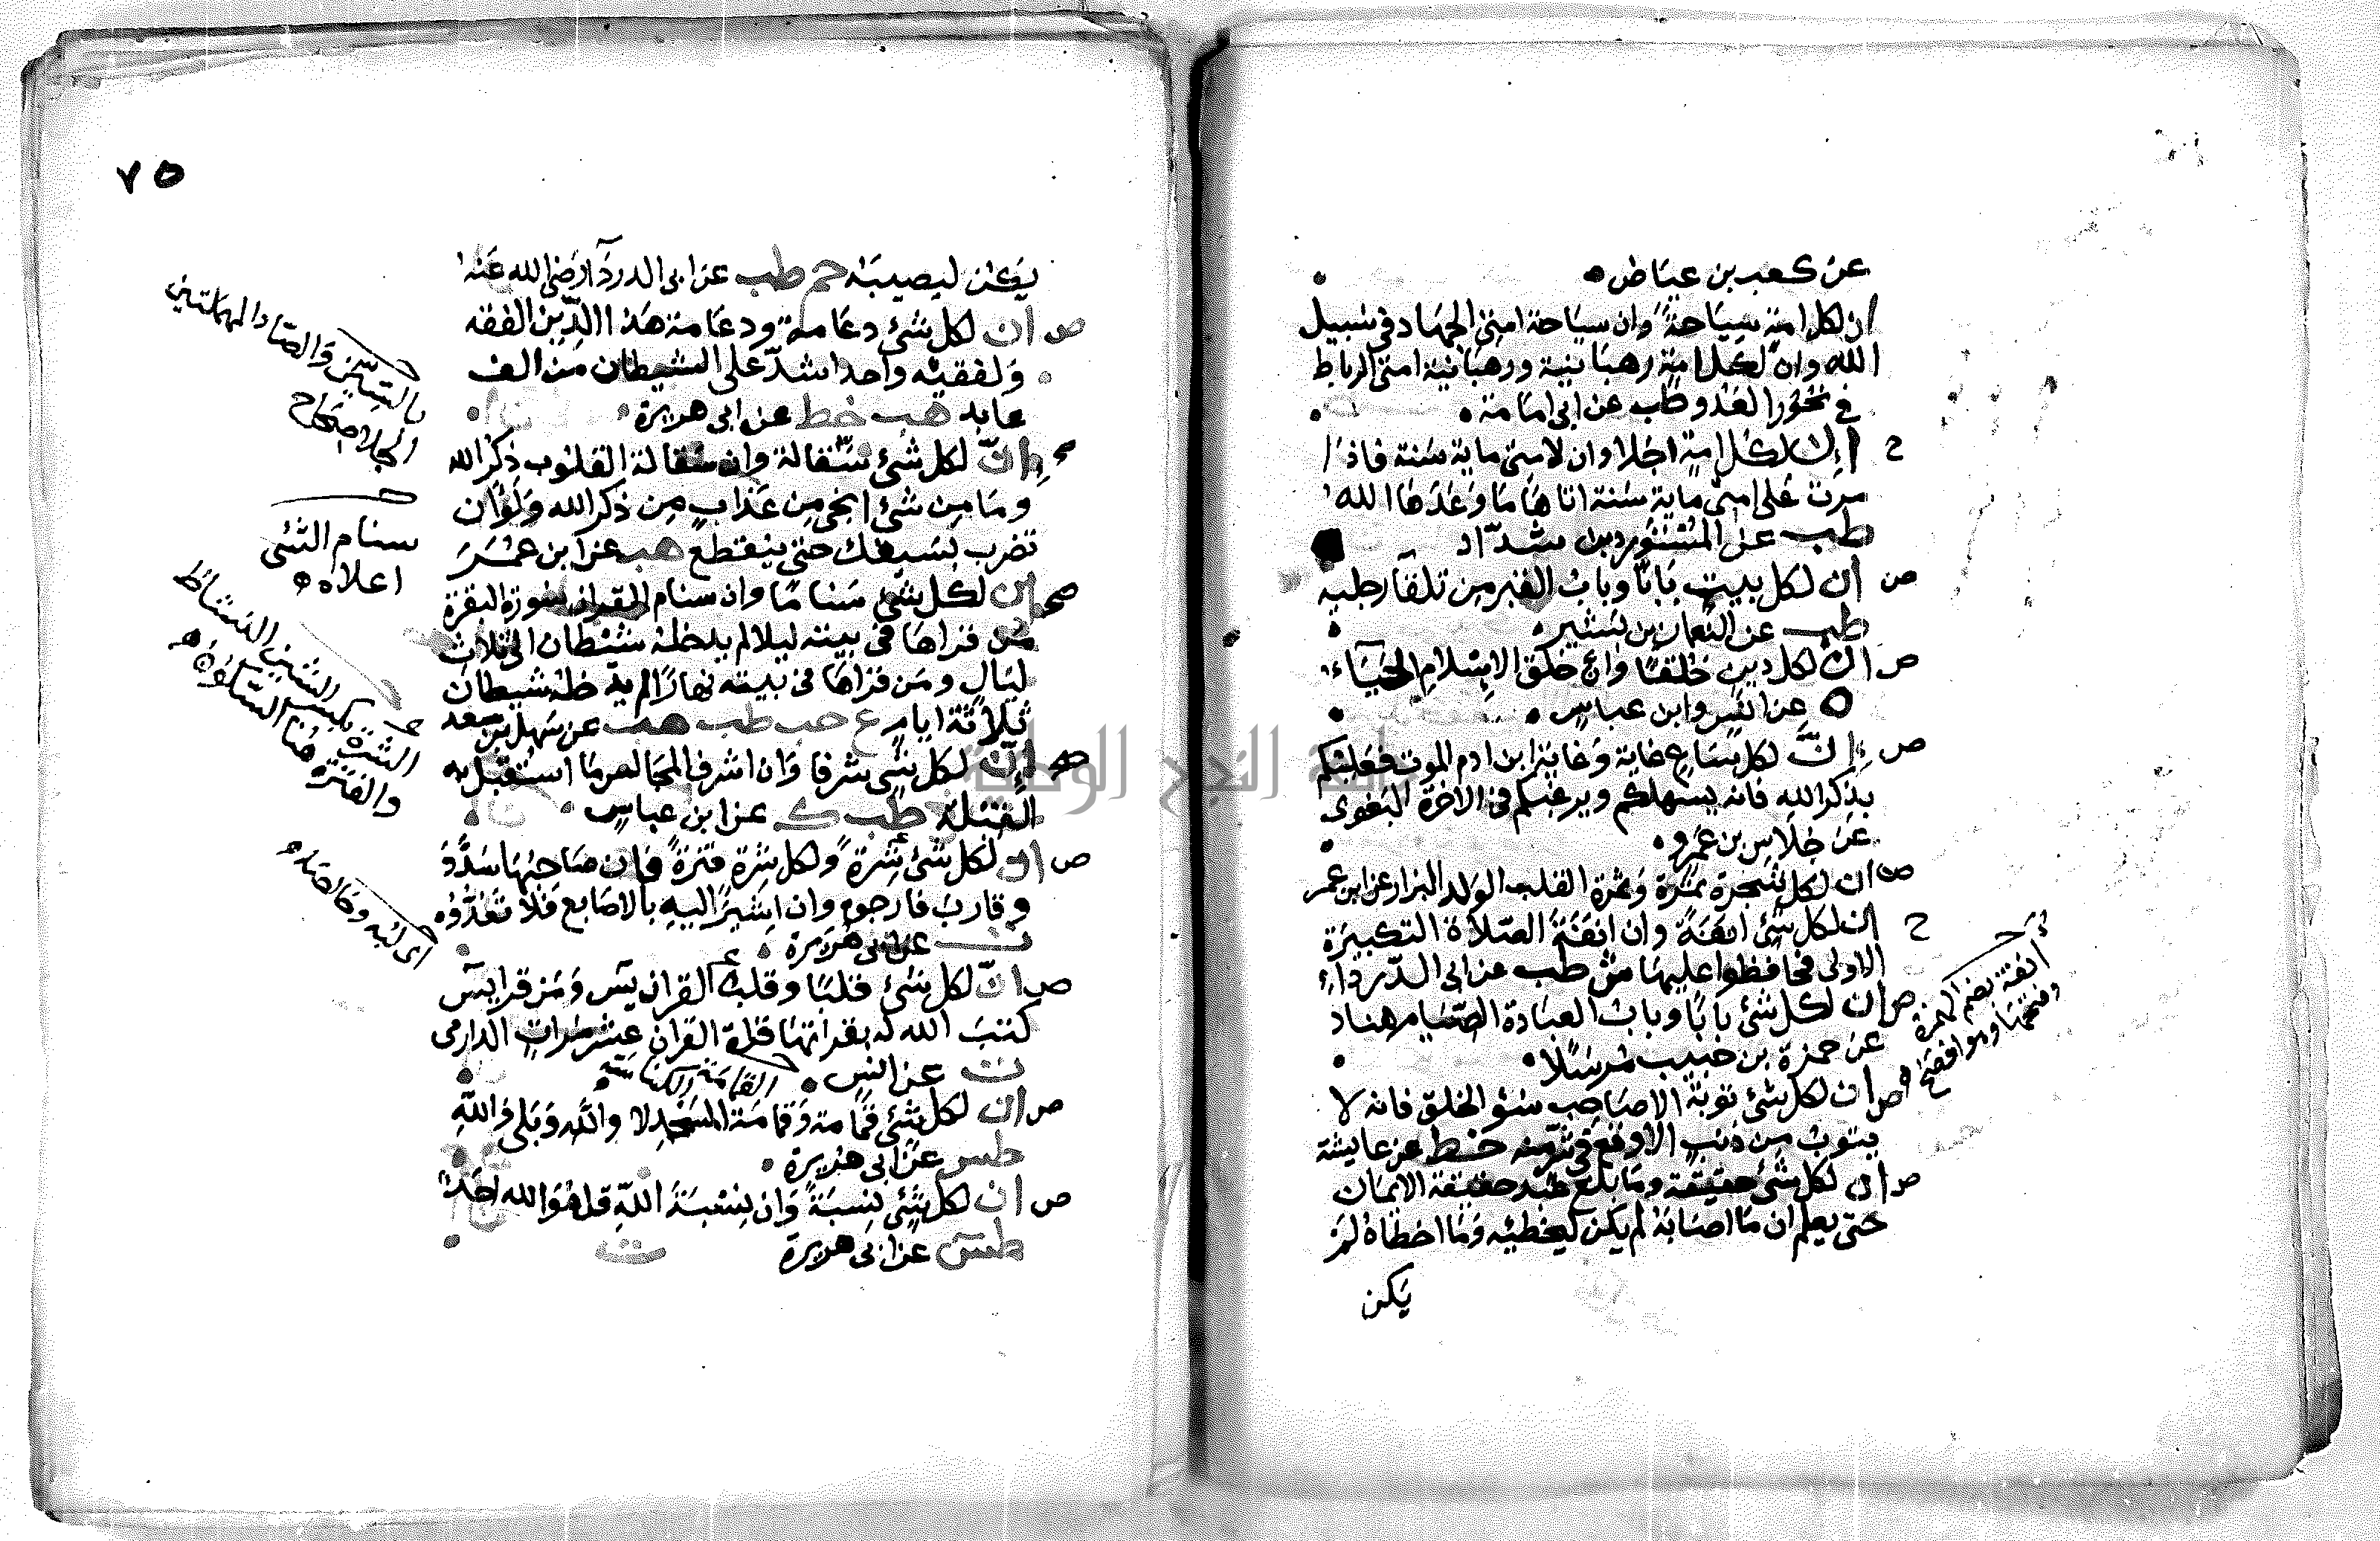 عن كعب بن عياض
ان لكل امة سياحة وان سياحة امتي الجهاد في سبيل
الله وان لكل امة رهبانية ورهبانية امتي الرباط
في نحور العدو طب عن ابي امامة
ح ان لكل امة اجلا وان لامتي ماية سنة فاذا
مرت على امتي ماية سنة اتاها ما وعدها الله
طب عن المستورد بن شداد
ص ان لكل بيت بابا وباب القبر من تلقا رجليه
طب عن النعمان بن بشير
ص ان لكل دين خلقا وان خلق الاسلام الحياء
ه عن انس وابن عباس
ص ان لكل ساع غاية وغاية ابن ادم الموت فعليكم
بذكر الله فانه يسهلكم ويرغبكم في الاخرة البغوي
عن جلاس بن عمرو
ص ان لكل شجرة ثمرة وثمرة القلب الولد البزار عن ابن عمر
ح ان لكل شئ انفة وان انفة الصلاة التكبيرة
الاولى فحافظوا عليها ش طب عن ابي الدرداء
ص ان لكل شئ بابا وباب العبادة الصيام هناد
عن حمزة بن حبيب مرسلا
ص ان لكل شئ توبة الا صاحب سؤ الخلق فانه لا
يتوب من ذنب الا وقع في شر منه خط عن عايشة
ص ان لكل شئ حقيقة وما بلغ عبد حقيقة الايمان
حتى يعلم ان ما اصابه لم يكن ليخطئه وما اخطاه لم
يكن
انفة بضم الهمزة
وفتحها وهو افصح
٧٥
يكن ليصيبه حم طب عن ابي الدرداء رضي الله عنه
ص ان لكل شئ دعامة ودعامة هذا الدين الفقه
ولفقيه واحد اشد على الشيطان من الف
عابد هب خط عن ابي هريرة
ان لكل شئ سقالة وان سقالة القلوب ذكر الله
وما من شئ انجى من عذاب من ذكر الله ولو ان
تضرب بسيفك حتى ينقطع هب عن ابن عمر
صح ان لكل شئ سناما وان سنام القران سورة البقرة
من قراها في بيته ليلا لم يدخله شيطان ثلاث
ليال ومن قراها في بيته نهارا لم يدخله شيطان
ثلاثة ايام ع حب طب هب عن سهل بن سعد
ان لكل شئ شرفا وان اشرف المجالس ما استقبل به
القبلة طب ك عن ابن عباس
ص ان لكل شئ شرة ولكل شرة فترة فان صاحبها سدد
وقارب فارجوه وان اشير اليه بالاصابع فلا تعدوه
ت عن ابي هريرة
ص ان لكل شئ قلبا وقلب القران يس ومن قرا يس
كتب الله له بقراتها قراة القران عشر مرات الدارمي
ت عن انس
القمامة الكناسة
ص ان لكل شئ قمامة وقمامة المسجد لا والله وبلى والله
طس عن ابي هريرة
ص ان لكل شئ نسبة وان نسبة الله قل هو الله احد
طس عن ابي هريرة
بالسين والصاد المهملتين
الجلا صحاح
سنام الشئ
اعلاه
الشرة بكسر الشين النشاط
والفترة هنا السكون
اي لبه وخالصه